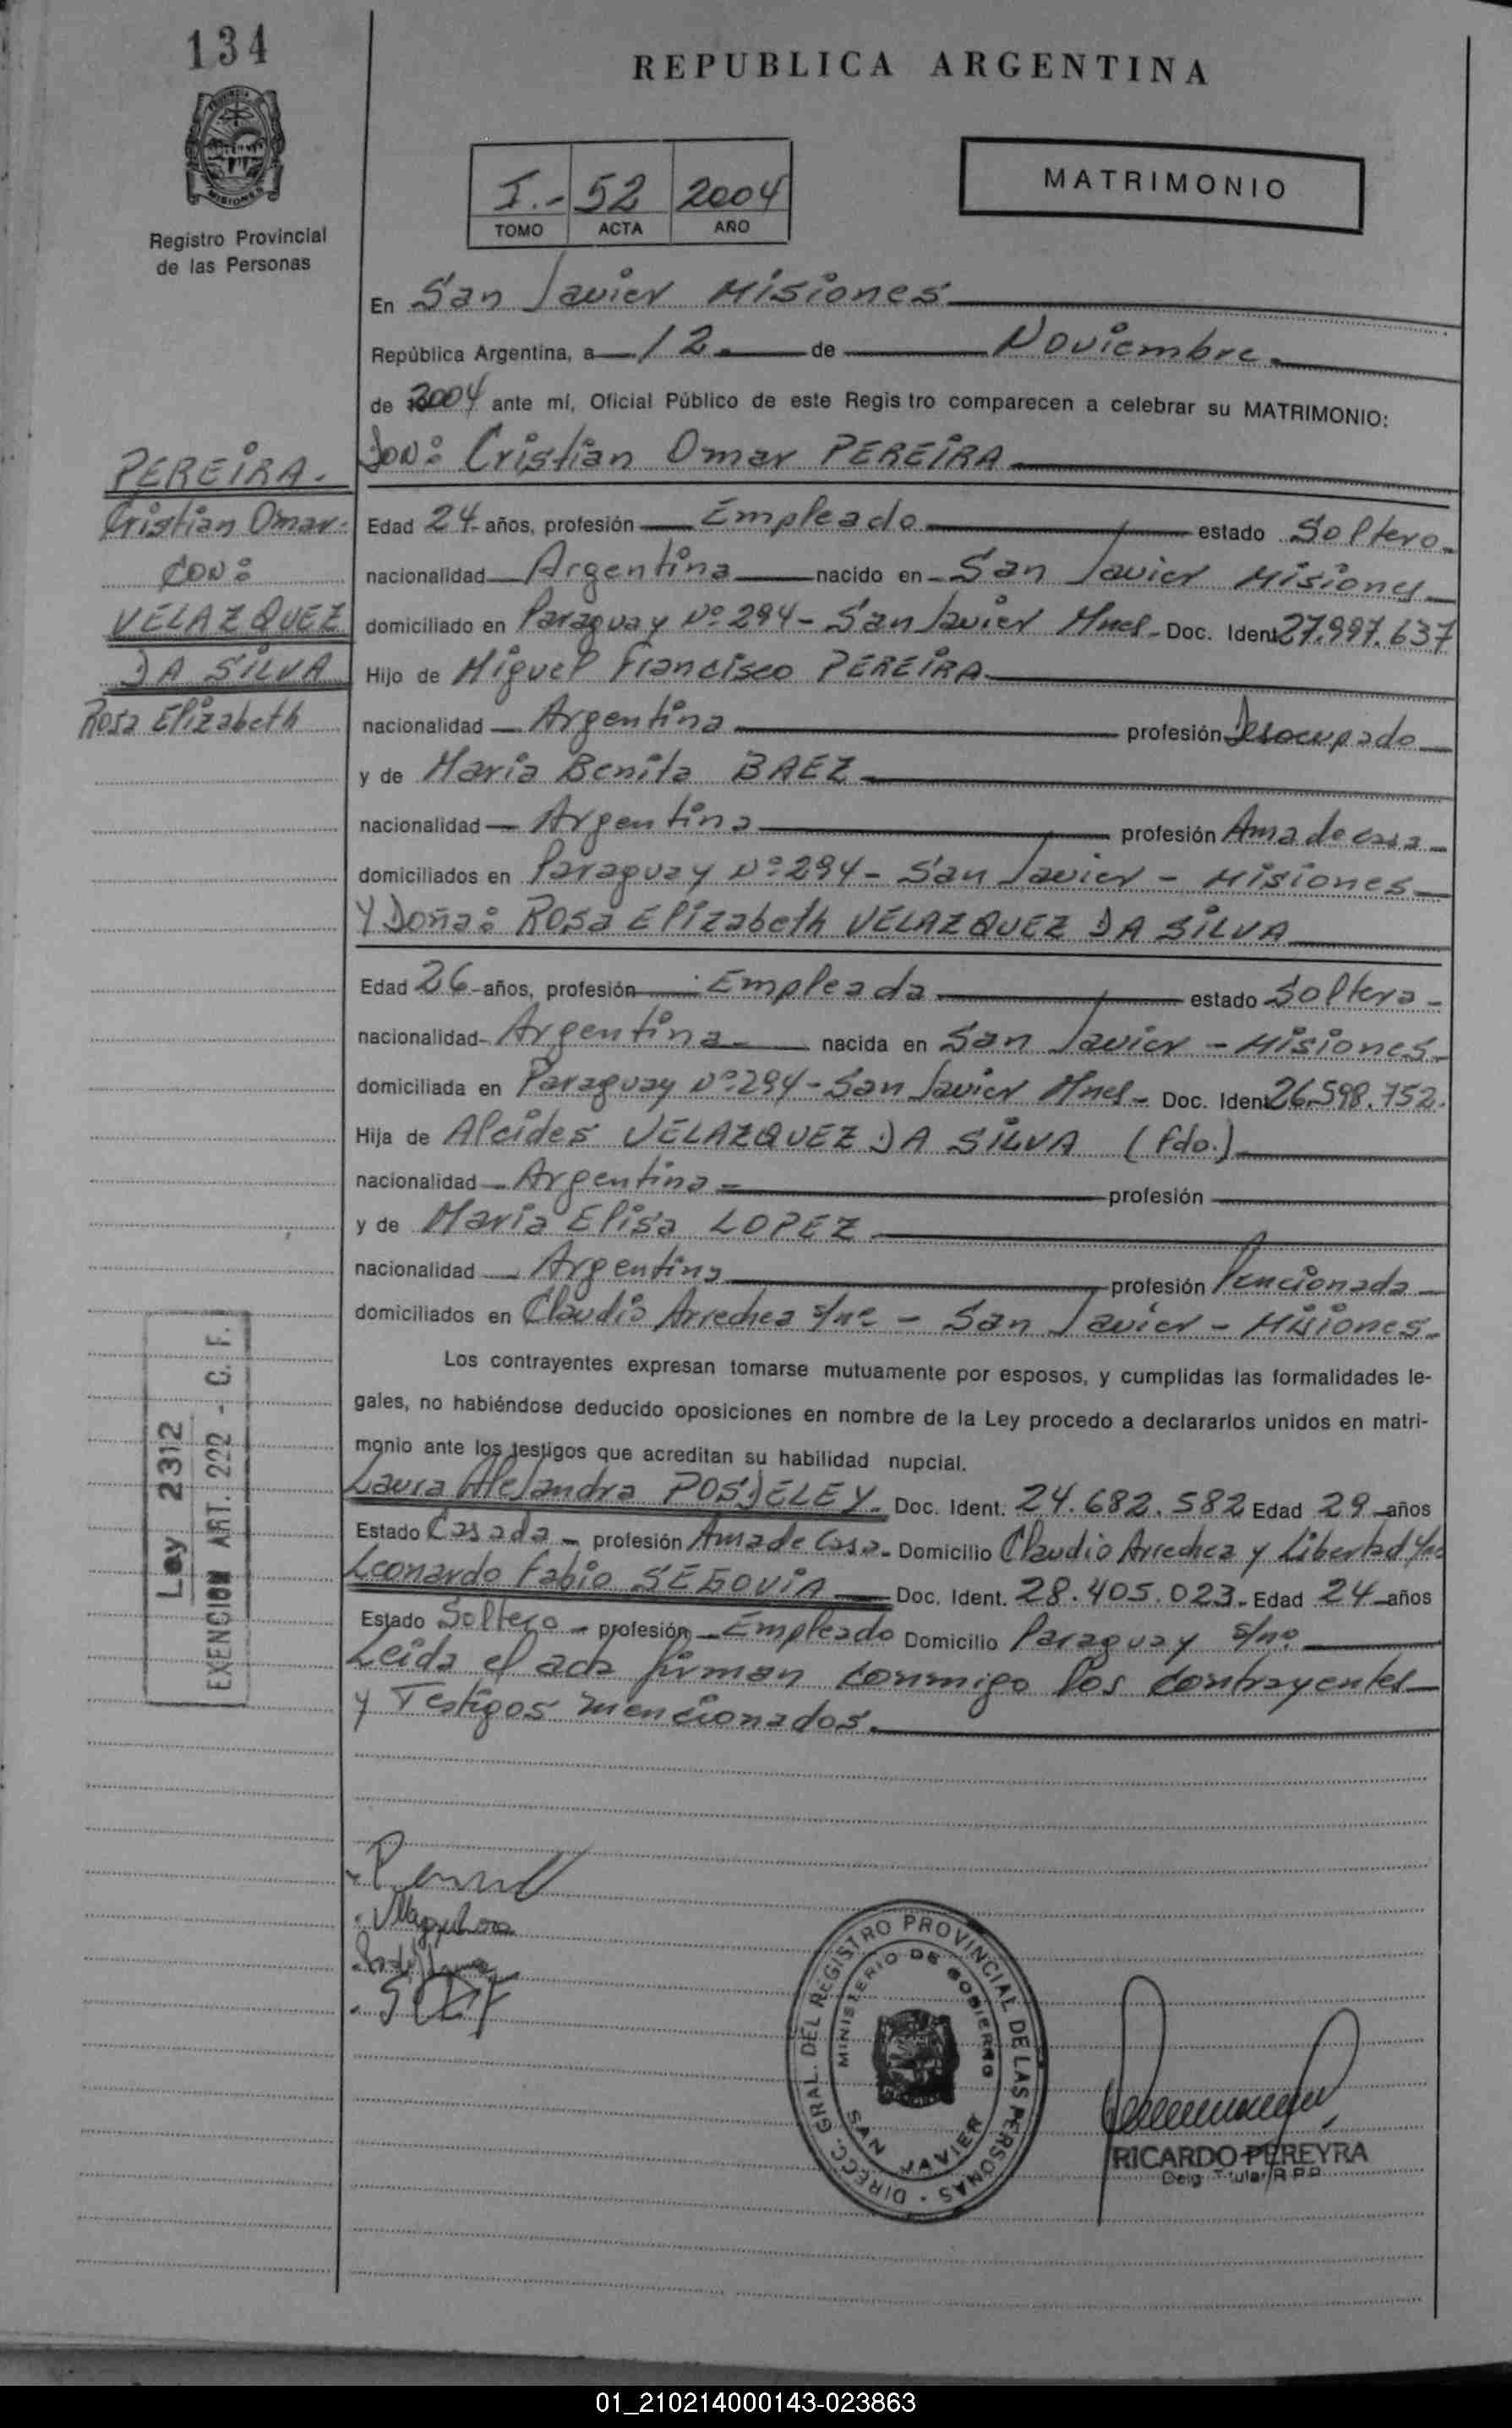 134
REPUBLICA ARGENTINA
PROVINCIA DE MISIONES
Registro Provincial
de las Personas
I.- 52 2004
TOMO ACTA AÑO
MATRIMONIO
En San Javier Misiones
República Argentina, a 12 de Noviembre.
de 2004 ante mí, Oficial Público de este Regis tro comparecen a celebrar su MATRIMONIO:
Don: Cristian Omar PEREIRA
PEREIRA.
Cristian Omar-
CON:
VELAZQUEZ
DA SILVA
Rosa Elizabeth
Edad 24 años, profesión Empleado estado Soltero
nacionalidad Argentina nacido en San Javier Misiones
domiciliado en Paraguay Nº 294- San Javier Mnes- Doc. Ident 27.997.637
Hijo de Miguel Francisco PEREIRA
nacionalidad Argentina profesión Desocupado
y de Maria Benita BAEZ
nacionalidad Argentina profesión Ama de casa
domiciliados en Paraguay Nº 294- San Javier - Misiones
Y Doña: Rosa Elizabeth VELAZQUEZ DA SILVA
Edad 26 años, profesión Empleada estado Soltera-
nacionalidad Argentina nacida en San Javier - Misiones
domiciliada en Paraguay Nº 294- San Javier Mnes- Doc. Ident 26.598.752.
Hija de Alcides VELAZQUEZ DA SILVA (fdo.)
nacionalidad Argentina profesión
y de Maria Elisa LOPEZ
nacionalidad Argentina profesión Pencionada
domiciliados en Claudio Arrechea s/nº - San Javier - Misiones-
Los contrayentes expresan tomarse mutuamente por esposos, y cumplidas las formalidades le-
gales, no habiéndose deducido oposiciones en nombre de la Ley procedo a declararlos unidos en matri-
monio ante los testigos que acreditan su habilidad nupcial.
Laura Alejandra POSDELEY. Doc. Ident. 24.682.582 Edad 29 años
Estado Casada- profesión Ama de Casa- Domicilio Claudio Arrechea y Libertad s/nº
Leonardo Fabio SEGOVIA Doc. Ident. 28.405.023- Edad 24 años
Estado Soltero- profesión Empleado Domicilio Paraguay s/nº
Leida el acta firman conmigo los contrayentes
y Testigos mencionados.
Ley 2312
EXENCION ART. 222 - C. F.
DIRECC. GRAL. DEL REGISTRO PROVINCIAL DE LAS PERSONAS
MINISTERIO DE GOBIERNO
SAN JAVIER
RICARDO PEREYRA
Deleg. Titular R.P.P.
01_210214000143-023863